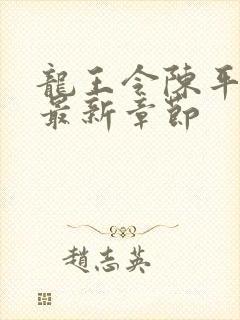 龍王令陳平
最新章節
趙志英